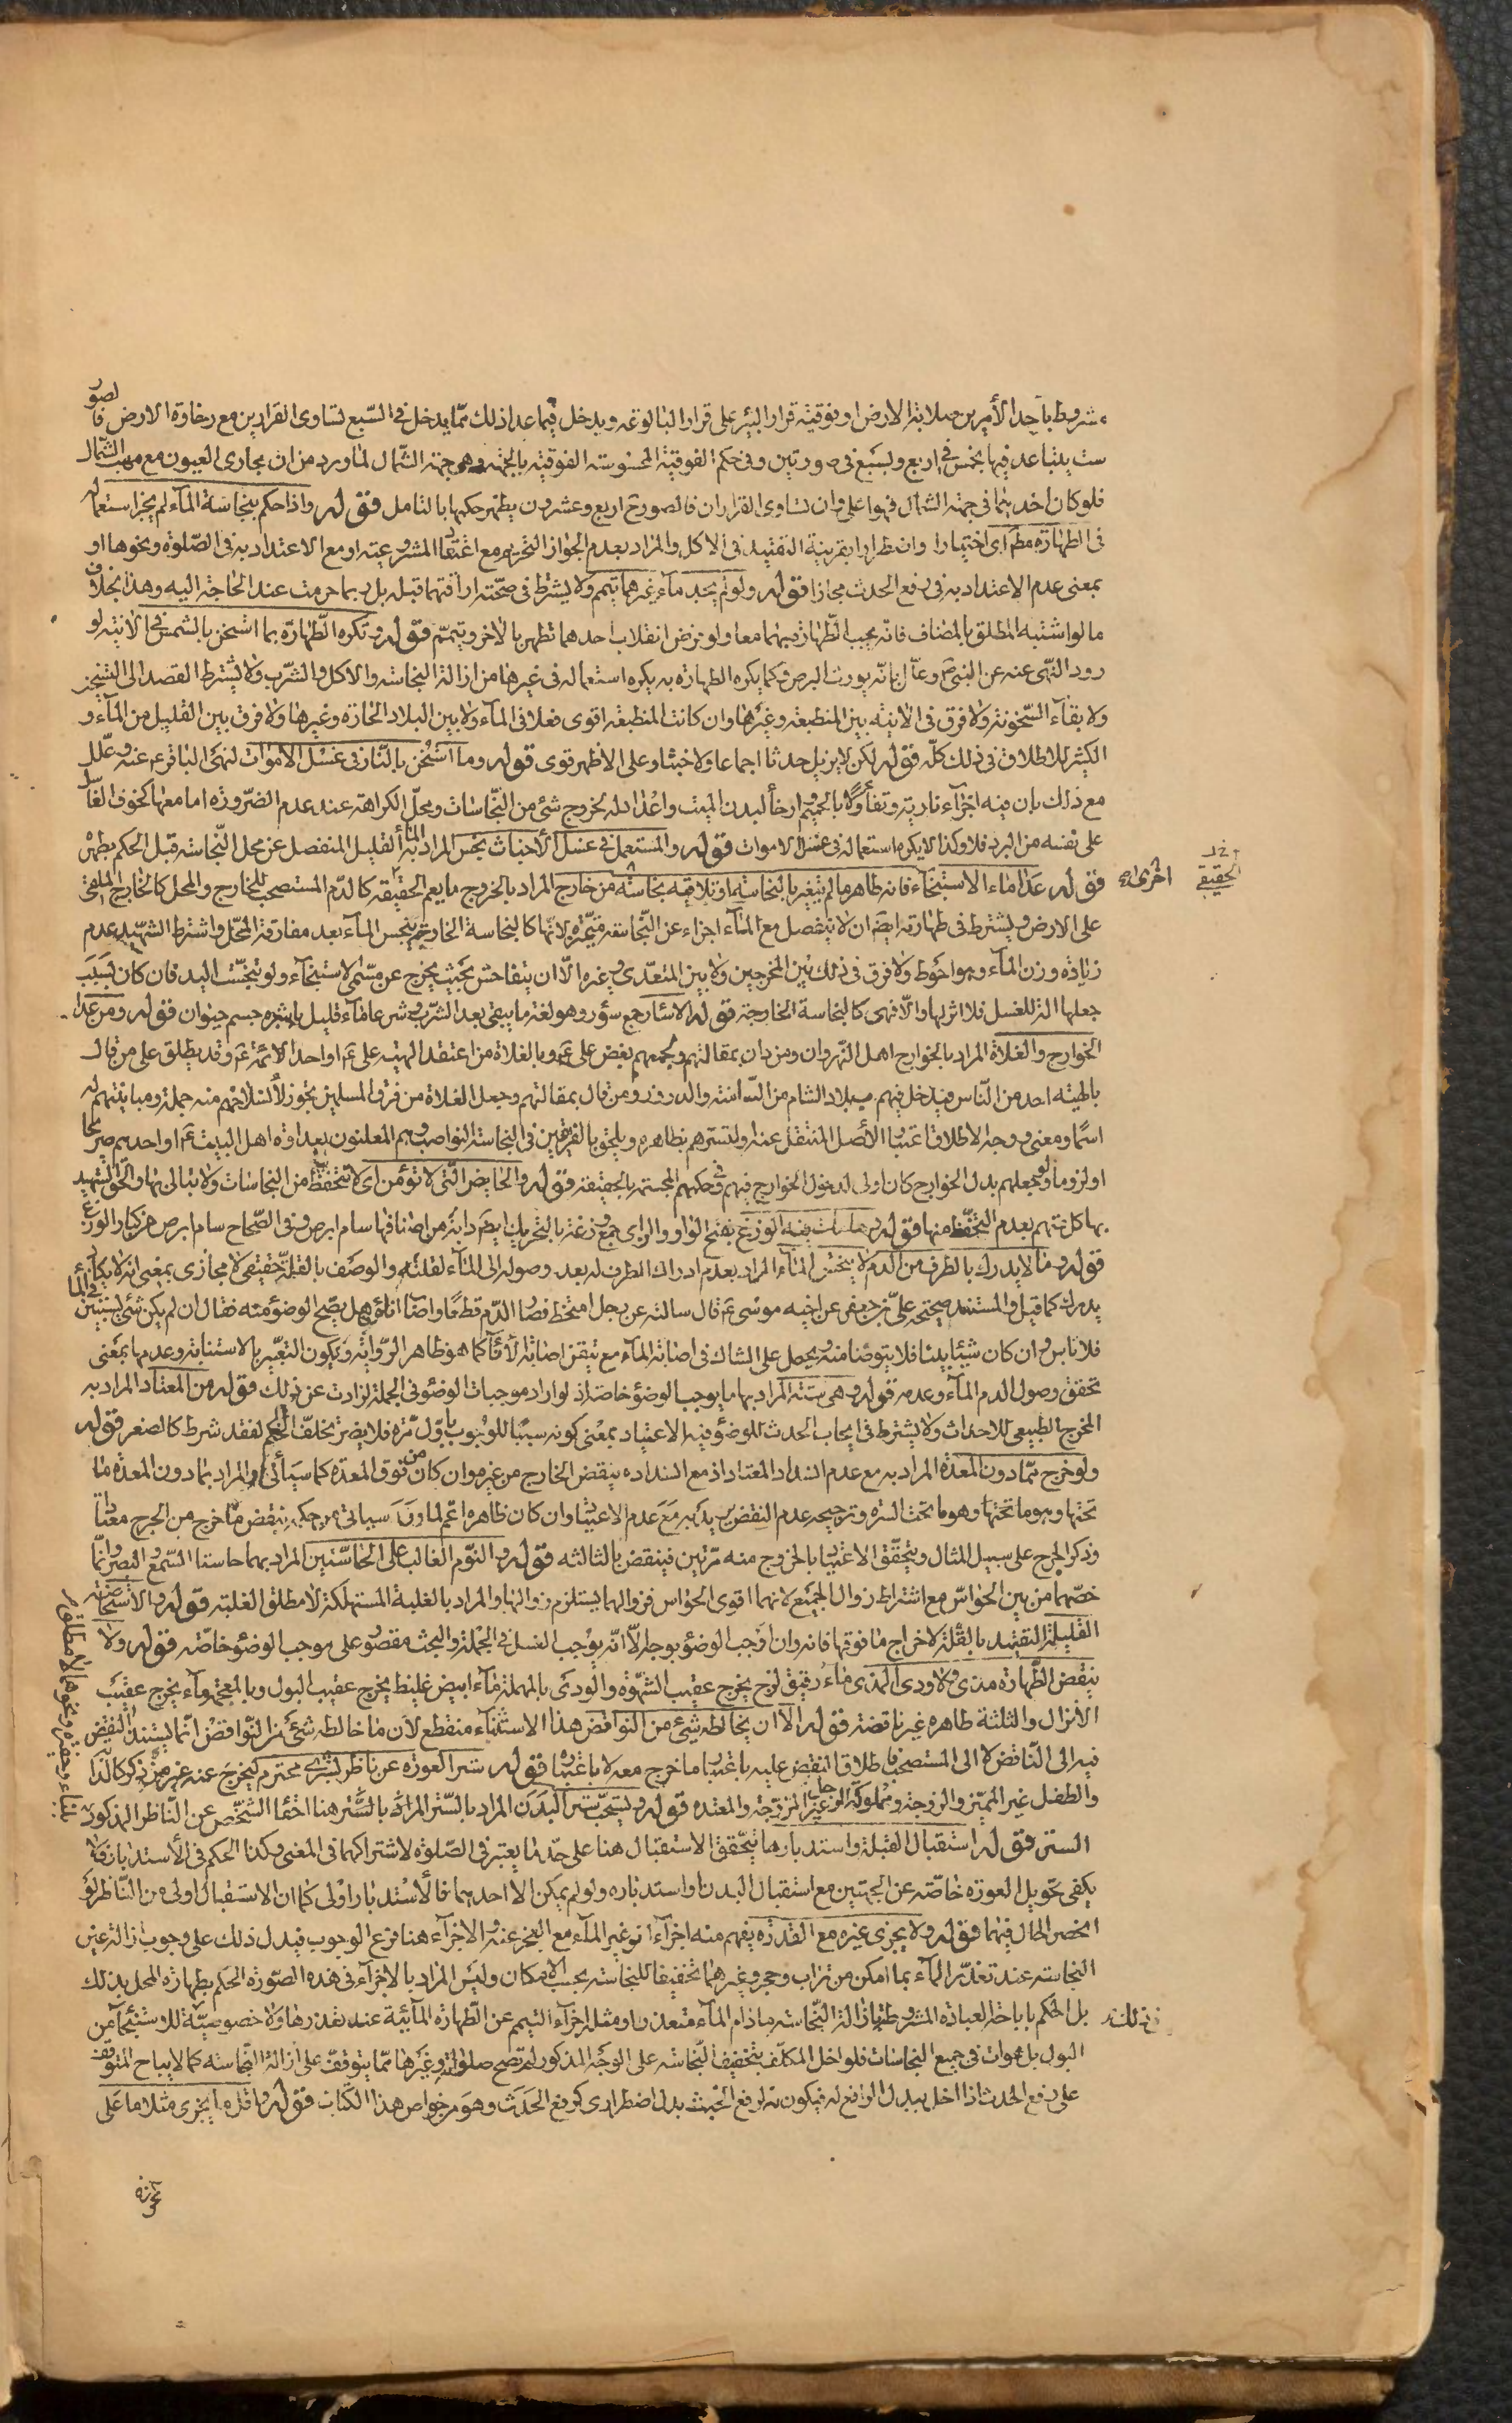 مشروط باحد الأمرين صلابة الارض او فوقية قرار البئر على قرار البالوعة ويدخل فيما عدا ذلك مما يدخل في السبع تساوى القرارين مع رخاوة الارض فا لصور
ست يتباعد فيها بخمس في اربع وبسبع في صورتين وفي حكم الفوقية المحسوسة الفوقية بالجهة وهي جهة الشمال لما ورد من ان مجارى العيون مع مهب الشمال
فلو كان احدهما في جهة الشمال فهو اعلى وان تساوى القراران فالصور ح اربع وعشرون يظهر حكمها بالتامل قوله واذا حكم بنجاسة الماء لم يجز استعماله
في الطهارة مطم اى اختيارا واضطرارا بقرينة التقييد في الاكل والمراد بعدم الجواز التحريم مع اعتقاد المشروعية او مع الاعتداد به في الصلوة ونحوها او
بمعنى عدم الاعتداد به في رفع الحدث مجازا قوله ولو لم يجد ماء غيرهما تيمم ولا يشترط في صحته اراقتهما قبله بل ربما حرمت عند الحاجة اليه وهذا بخلاف
ما لو اشتبه المطلق بالمضاف فانه يجب الطهارة بهما معا ولو فرض انقلاب احدهما تطهر بالاخر وتيمم قوله وتكره الطهارة بما اسخن بالشمس في الانية لو
رود النهى عنه عن النبى ص وعلل بانه يورث البرص وكما يكره الطهارة به يكره استعماله في غيرها من ازالة النجاسة والاكل والشرب ولا يشترط القصد الى التسخين
ولا بقاء السخونة ولا فرق في الانية بين المنطبعة وغيرها وان كانت المنطبعة اقوى فعلا في الماء ولا بين البلاد الحارة وغيرها ولا فرق بين القليل من الماء و
الكثير للاطلاق في ذلك كله قوله لكن لا يزيل حدثا اجماعا ولا خبثا وعلى الاظهر قوى قوله وما اسخن بالنار في غسل الاموات لنهى الباقر ع عنه وعلل
مع ذلك بان فيه اجزاء نارية وتفأولا بالحميم وارخأ لبدن الميت واعدادا له لخروج شئ من النجاسات ومحل الكراهة عند عدم الضرورة اما معها كخوف الغاسل
على نفسه من البرد فلا وكذا لا يكره استعماله في غسل الاموات قوله والمستعمل في غسل الاخباث نجس المراد به الماء القليل المنفصل عن محل النجاسة قبل الحكم بطهره
قوله عدا ماء الاستنجاء فانه طاهر ما لم يتغير بالنجاسة او تلاقيه نجاسة من خارج المراد بالخروج ما يعم الحقيقة كالدم المستصحب للخارج والمحل كالخارج الملقى
اخرى صح
خ ل
الحقيقى
على الارض ويشترط في طهارته ايضا ان لا تنفصل مع الماء اجزاء عن النجاسة متميزة لانها كالنجاسة الخارجة ينجس الماء بعد مفارقة المحل واشترط الشهيد عدم
زيادة وزن الماء وهو احوط ولا فرق في ذلك بين المخرجين ولا بين المتعدى وغيره الا ان يتفاحش بحيث يخرج عن مسمى الاستنجاء ولو تنجست اليد فان كان بسبب
جعلها الة للغسل فلا اثر لها والا فهى كالنجاسة الخارجة قوله الاسئار جمع سؤر وهو لغة ما يبقى بعد الشرب وشرعا ماء قليل باشره جسم حيوان قوله ومن عدا
الخوارج والغلاة المراد بالخوارج اهل النهروان ومن دان بمقالتهم ويجمعهم بغض على ع وبالغلاة من اعتقد الهية على ع او احد الائمة ع وقد يطلق على من قال
بالهية احد من الناس فيدخل فيهم ببلاد الشام من التيامنة والدروز ومن قال بمقالتهم وجعل الغلاة من فرق المسلمين تجوز لانسلاخهم منه جملة ومباينتهم له
اسما ومعنى ووجه الاطلاق اعتبار الأصل المنتقل عنه ولتسترهم بظاهره ويلحق بالفريقين في النجاسة النواصب وهم المعلنون بعداوة اهل البيت ع او احدهم صريحا
او لزوما ولو جعلهم بدل الخوارج كان اولى لدخول الخوارج فيهم وفي حكمهم المجسمة بالحقيقة قوله والحايض التى لا تؤمن اى لا تتحفظ من النجاسات ولا تبالى بها والحق الشهيد
بها كل متهم بعدم التحفظ منها قوله وما مات فيه الوزغ بفتح الواو والزاى جمع وزغة بالتحريك ايضا دابة من اصنافها سام ابرص وفي الصحاح سام ابرص من كبار الوزغ
قوله وما لا يدرك بالطرف من الدم لا ينجس الماء المراد بعدم ادراك الطرف له بعد وصوله الى الماء لقلته والوصف بالقلة حقيقى لا مجازى بمعنى انه لا يكاد
يدرك كما قيل والمستند صحيحة على بن جعفر عن اخيه موسى ع قال سالته عن رجل امتخط فصار الدم قطعا فاصاب اناءه هل يصح الوضوء منه فقال ان لم يكن شئ يستبين في الماء
فلا باس وان كان شيئا بينا فلا يتوضا منه ويحمل على الشك في اصابة الماء مع تيقن اصابة الاناء كما هو ظاهر الرواية ويكون التعبير بالاستبانة وعدمها بمعنى
تحقق وصول الدم الماء وعدمه قوله وهى ستة المراد بها ما يوجب الوضوء خاصة اذ لو اراد موجبات الوضوء في الجملة لزادت عن ذلك قوله من المعتاد المراد به
المخرج الطبيعى للاحداث ولا يشترط في ايجاب الحدث للوضوء فيه الاعتياد بمعنى كونه سببا للوجوب باول مرة فلا يضر تخلف الحكم لفقد شرط كالصغر قوله
ولو خرج مما دون المعدة المراد به مع عدم انسداد المعتاد اذ مع انسداده ينقض الخارج من غيره وان كان من فوق المعدة كما سيأتى والمراد بما دون المعدة ما
تحتها وهو ما تحتها وهو ما تحت السرة وترجيحه عدم النقض يريد به مع عدم الاعتياد وان كان ظاهره اعم لما سياتى من حكمه بنقض ما خرج من الجرح معتادا
وذكر الجرح على سبيل المثال ويتحقق الاعتياد بالخروج منه مرتين فينقض بالثالثه قوله والنوم الغالب على الحاستين المراد بهما حاستا السمع والبصر وانما
خصهما من بين الحواس مع اشتراط زوال الجميع لانهما اقوى الحواس فزوالهما يستلزم زوالها والمراد بالغلبة المستهلكة لا مطلق الغلبة قوله والاستحاضة
القليلة التقييد بالقلة لاخراج ما فوقها فانه وان اوجب الوضوء بوجه الا انه يوجب الغسل في الجملة والبحث مقصور على موجب الوضوء خاصة قوله ولا
ينقض الطهارة مذى ولا ودى المذى ماء رقيق لزج يخرج عقيب الشهوة والودى بالمهملة ماء ابيض غليظ يخرج عقيب البول وبالمعجمة ماء يخرج عقيب
الانزال والثلثة طاهرة غير ناقضة قوله الا ان يخالطه شئ من النواقض هذا الاستثناء منقطع لان ما خالطه شئ من النواقض انما يستند النقض
فيه الى الناقض لا الى المستصحب فاطلاق النقض عليه باعتبار ما خرج معه لا باعتباره قوله ستر العورة عن ناظر بشرى محترم ليخرج عنه غير من ذكر كالدابة
والطفل غير المميز والزوجة ومملوكة الرجل غير المزوجة والمعتدة قوله ويستحب ستر البدن المراد بالستر المراد بالستر هنا اخفاء الشخص عن الناظر المذكور
الستر قوله استقبال القبلة واستدبارها يتحقق الاستقبال هنا على حد ما يعتبر في الصلوة لاشتراكهما في المعنى وكذا الحكم في الاستدبار فلا
يكفى تحويل العورة خاصة عن الجهتين مع استقبال البدن او استدباره ولو لم يمكن الا احدهما فالاستدبار اولى كما ان الاستقبال اولى من الناظر لو
انحصر الحال فيهما قوله ولا يجزى غيره مع القدرة يفهم منه اجزاء غير الماء مع العجز عنه والاجزاء هنا فرع الوجوب فيدل ذلك على وجوب ازالة عين
النجاسة عند تعذر الماء بما امكن من تراب وحجر وغيرهما تخفيفا للنجاسة بحسب الامكان وليس المراد بالاجزاء في هذه الصورة الحكم بطهارة المحل بذلك
بل الحكم باباحة العبادة المشروطة بازالة النجاسة ما دام الماء متعذرا ومثله اجزاء التيمم عن الطهارة المائية عند تعذرها ولا خصوصية للاستنجاء من
البول بل هو ات في جميع النجاسات فلو اخل المكلف بتخفيف النجاسة على الوجه المذكور لم تصح صلوته وغيرها مما يتوقف على ازالة النجاسة كما لا يباح المتوقف
على رفع الحدث اذا اخل ببدل الرافع له فيكون لرفع الخبث بدل اضطرارى كرفع الحدث وهو من خواص هذا الكتاب قوله واقل ما يجزى مثلا ما على
مخرجه